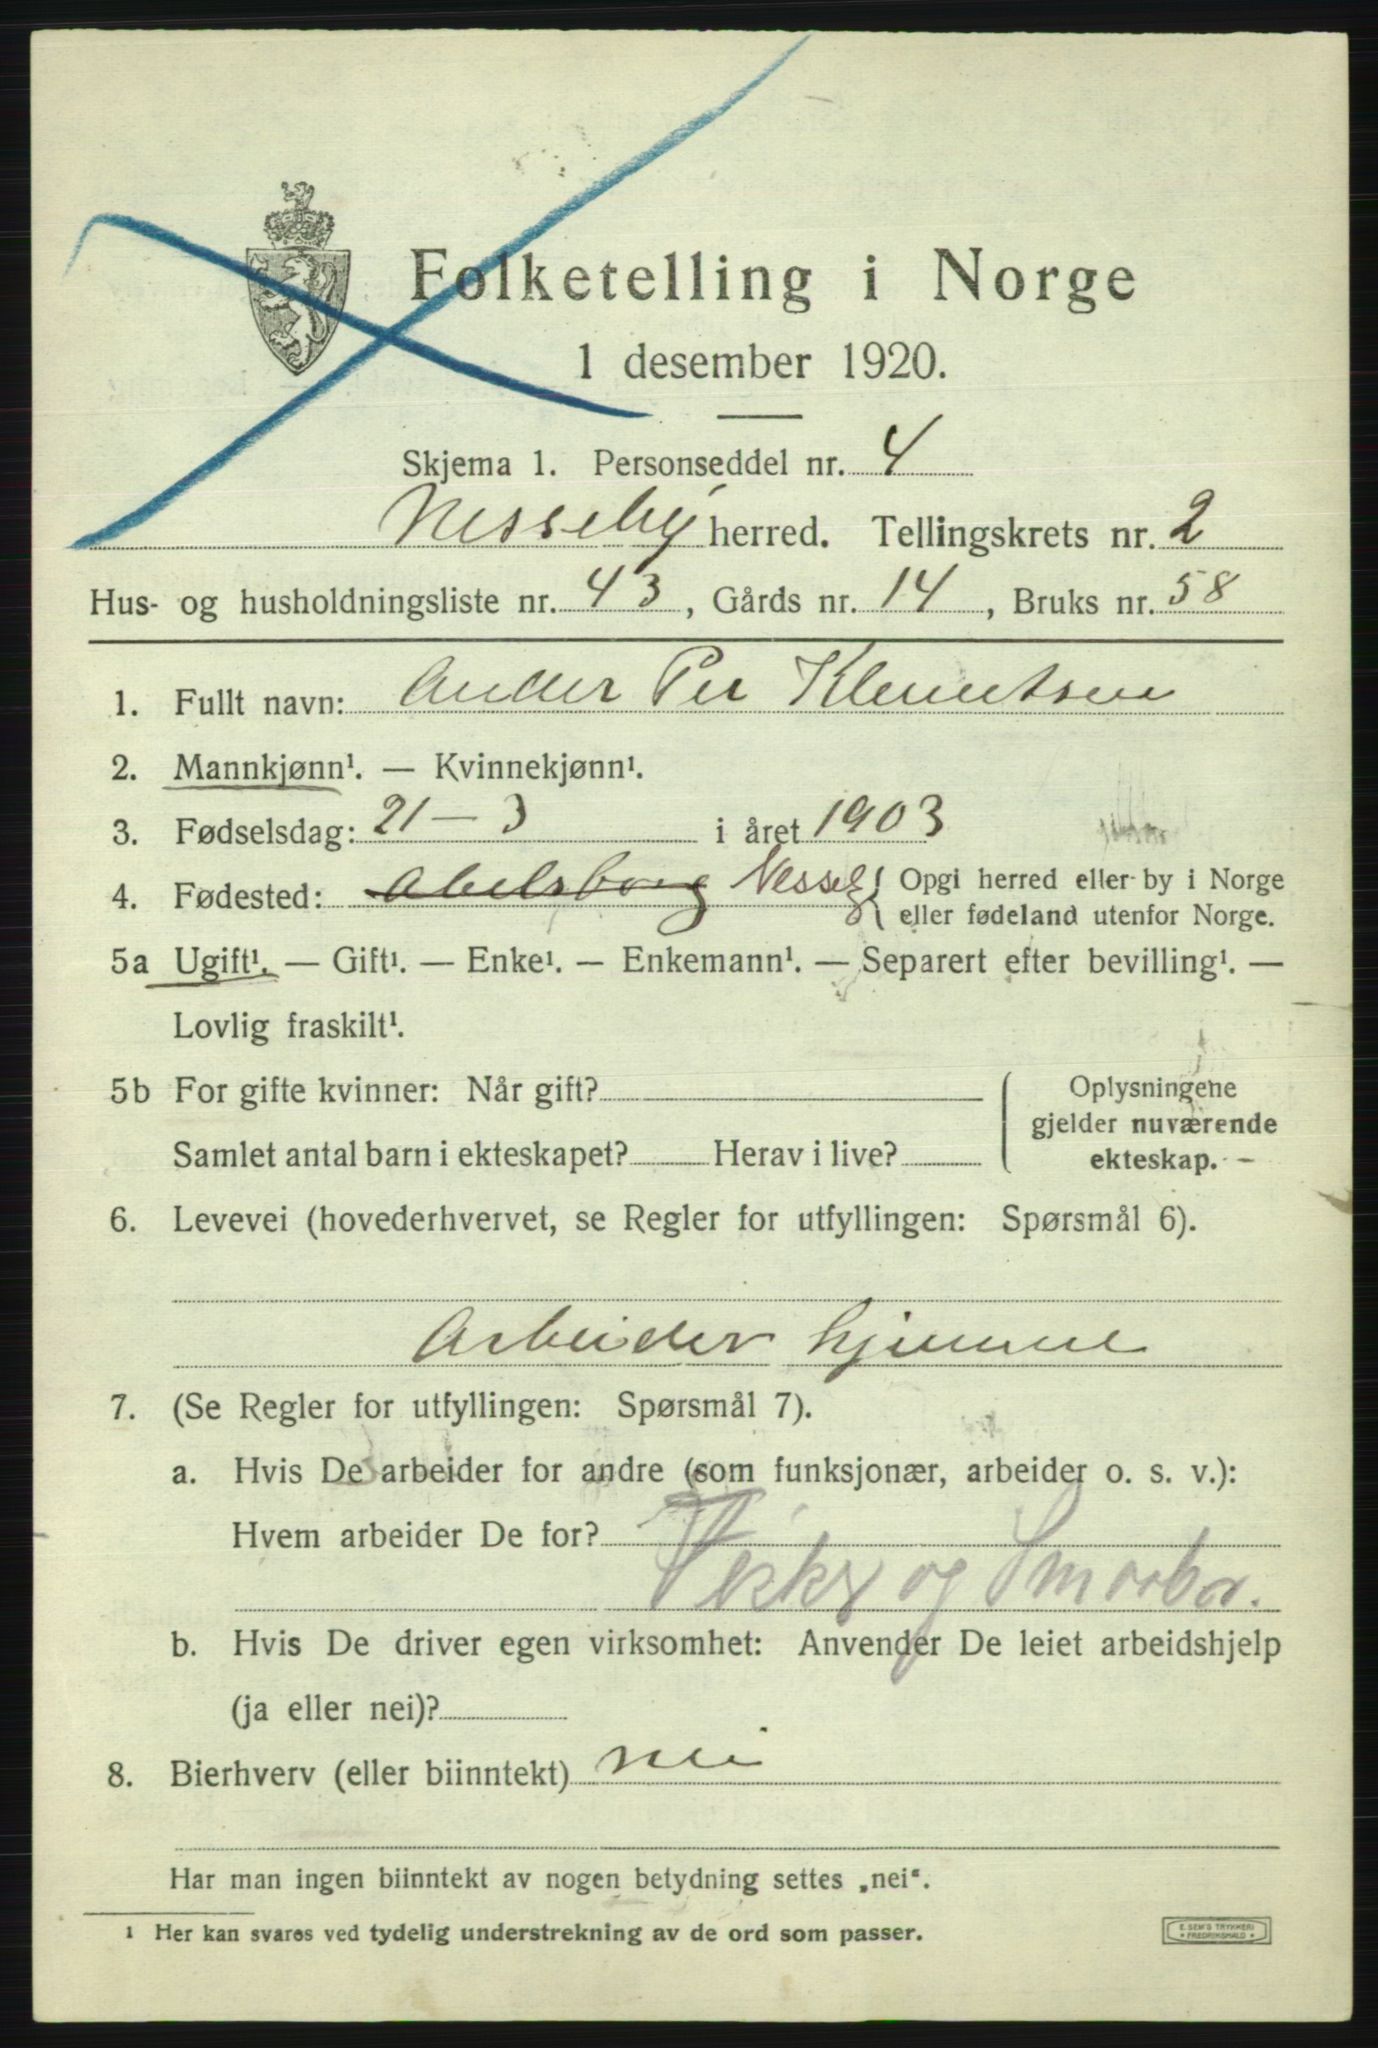 Folketelling i Norge
1 desember 1920.
Skjema 1. Personseddel nr. 4
Nesseby herred. Tellingskrets nr. 2
Hus- og husholdningsliste nr. 43, Gårds nr. 14, Bruks nr. 58
1. Fullt navn: Ander Per Klemetsen
2. Mannkjønn¹. — Kvinnekjønn¹.
3. Fødselsdag: 21-3 i året 1903
4. Fødested: Abelsborg Nesseby { Opgi herred eller by i Norge
eller fødeland utenfor Norge.
5a Ugift¹. — Gift¹. — Enke¹. — Enkemann¹. — Separert efter bevilling¹. —
Lovlig fraskilt¹.
5b For gifte kvinner: Når gift?
Samlet antal barn i ekteskapet? Herav i live?
Oplysningene
gjelder nuværende
ekteskap.
6. Levevei (hovederhvervet, se Regler for utfyllingen: Spørsmål 6).
Arbeider hjemme
7. (Se Regler for utfyllingen: Spørsmål 7).
a. Hvis De arbeider for andre (som funksjonær, arbeider o. s. v.):
Hvem arbeider De for?
og
b. Hvis De driver egen virksomhet: Anvender De leiet arbeidshjelp
(ja eller nei)?
8. Bierhverv (eller biinntekt) nei
Har man ingen biinntekt av nogen betydning settes „nei“.
¹ Her kan svares ved tydelig understrekning av de ord som passer.
E. SEM'S TRYKKERI
* FREDRIKSHALD *